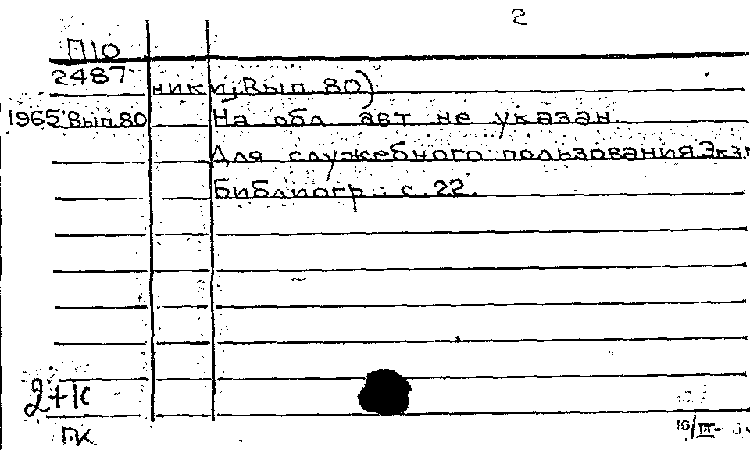 2
П10
2487 ники; Вып. 80)
1965 Вып.80 На обл. авт. не указан.
Для служебного пользования. Экз.
Библиогр.: с. 22.
2+К
ПК
16/III-